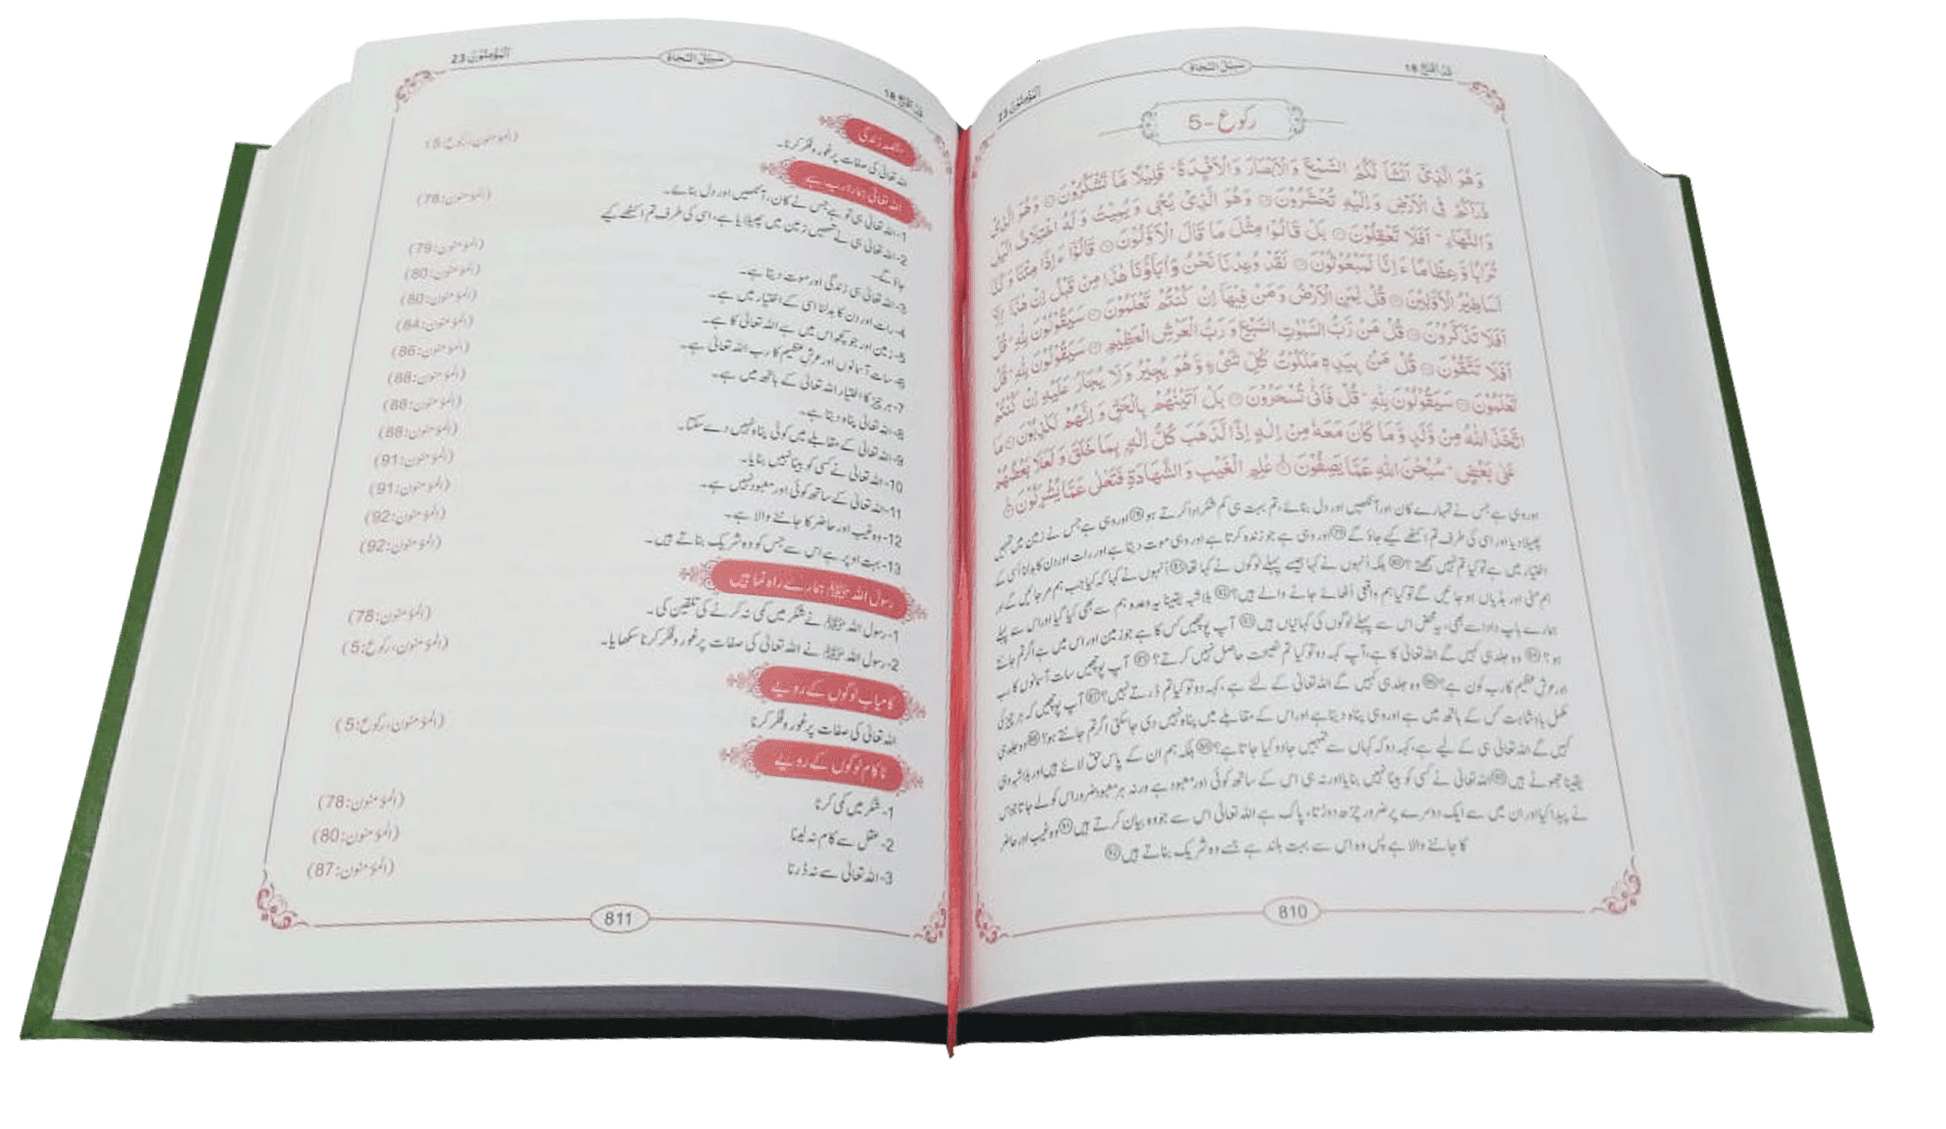 اَلْمُؤْمِنُوْن 23
سَبِيْلُ النَّجَاة
قَدْ اَفْلَحَ 18
رکوع-5
وَهُوَ الَّذِیْۤ اَنْشَاَ لَكُمُ السَّمْعَ وَالْاَبْصَارَ وَالْاَفْـِٕدَةَ ؕ قَلِیْلًا مَّا تَشْكُرُوْنَ ۝ وَهُوَ الَّذِیْ
ذَرَاَكُمْ فِی الْاَرْضِ وَاِلَیْهِ تُحْشَرُوْنَ ۝ وَهُوَ الَّذِیْ یُحْیٖ وَیُمِیْتُ وَلَهُ اخْتِلَافُ الَّیْلِ
وَالنَّهَارِ ؕ اَفَلَا تَعْقِلُوْنَ ۝ بَلْ قَالُوْا مِثْلَ مَا قَالَ الْاَوَّلُوْنَ ۝ قَالُوْۤا ءَاِذَا مِتْنَا وَكُنَّا
تُرَابًا وَّعِظَامًا ءَاِنَّا لَمَبْعُوْثُوْنَ ۝ لَقَدْ وُعِدْنَا نَحْنُ وَاٰبَآؤُنَا هٰذَا مِنْ قَبْلُ اِنْ هٰذَاۤ اِلَّاۤ
اَسَاطِیْرُ الْاَوَّلِیْنَ ۝ قُلْ لِّمَنِ الْاَرْضُ وَمَنْ فِیْهَاۤ اِنْ كُنْتُمْ تَعْلَمُوْنَ ۝ سَیَقُوْلُوْنَ لِلّٰهِ ؕ قُلْ
اَفَلَا تَذَكَّرُوْنَ ۝ قُلْ مَنْ رَّبُّ السَّمٰوٰتِ السَّبْعِ وَرَبُّ الْعَرْشِ الْعَظِیْمِ ۝ سَیَقُوْلُوْنَ لِلّٰهِ ؕ قُلْ
اَفَلَا تَتَّقُوْنَ ۝ قُلْ مَنْۢ بِیَدِهٖ مَلَكُوْتُ كُلِّ شَیْءٍ وَّهُوَ یُجِیْرُ وَلَا یُجَارُ عَلَیْهِ اِنْ كُنْتُمْ
تَعْلَمُوْنَ ۝ سَیَقُوْلُوْنَ لِلّٰهِ ؕ قُلْ فَاَنّٰی تُسْحَرُوْنَ ۝ بَلْ اَتَیْنٰهُمْ بِالْحَقِّ وَاِنَّهُمْ لَكٰذِبُوْنَ ۝ مَا
اتَّخَذَ اللّٰهُ مِنْ وَّلَدٍ وَّمَا كَانَ مَعَهٗ مِنْ اِلٰهٍ اِذًا لَّذَهَبَ كُلُّ اِلٰهٍۭ بِمَا خَلَقَ وَلَعَلَا بَعْضُهُمْ
عَلٰی بَعْضٍ ؕ سُبْحٰنَ اللّٰهِ عَمَّا یَصِفُوْنَ ۝ عٰلِمِ الْغَیْبِ وَالشَّهَادَةِ فَتَعٰلٰی عَمَّا یُشْرِكُوْنَ ۝
اور وہی ہے جس نے تمہارے کان اور آنکھیں اور دل بنائے، تم بہت ہی کم شکر ادا کرتے ہو ۝ اور وہی ہے جس نے زمین میں تمہیں
پھیلا دیا اور اسی کی طرف تم اکٹھے کیے جاؤ گے ۝ اور وہی ہے جو زندہ کرتا ہے اور وہی موت دیتا ہے اور رات اور دن کا بدلنا اُسی کے
اختیار میں ہے تو کیا تم نہیں سمجھتے؟ ۝ بلکہ اُنہوں نے کہا جیسے پہلے لوگوں نے کہا تھا ۝ اُنہوں نے کہا کہ کیا جب ہم مر جائیں گے اور
ہم مٹی اور ہڈیاں ہو جائیں گے تو کیا ہم واقعی اُٹھائے جانے والے ہیں؟ ۝ بلاشبہ یقیناً یہ وعدہ ہم سے بھی کیا گیا اور اس سے پہلے
ہمارے باپ دادا سے بھی، یہ محض اس سے پہلے لوگوں کی کہانیاں ہیں ۝ آپ پوچھیں کس کا ہے جو زمین اور اس میں ہے اگر تم جانتے
ہو؟ ۝ وہ جلد ہی کہیں گے اللہ تعالیٰ کا ہے، آپ کہہ دو تو کیا تم نصیحت حاصل نہیں کرتے؟ ۝ آپ پوچھیں سات آسمانوں کا رب
اور عرش عظیم کا رب کون ہے؟ ۝ وہ جلد ہی کہیں گے اللہ تعالیٰ کے لئے ہے، کہہ دو تو کیا تم ڈرتے نہیں؟ ۝ آپ پوچھیں کہ ہر چیز کی
مکمل بادشاہت کس کے ہاتھ میں ہے اور وہی پناہ دیتا ہے اور اس کے مقابلے میں پناہ نہیں دی جا سکتی اگر تم جانتے ہو؟ ۝ وہ جلد ہی
کہیں گے اللہ تعالیٰ ہی کے لیے ہے، کہہ دو کہ کہاں سے تمہیں جادو کیا جاتا ہے؟ ۝ بلکہ ہم ان کے پاس حق لائے ہیں اور بلاشبہ وہی
یقیناً جھوٹے ہیں ۝ اللہ تعالیٰ نے کسی کو بیٹا نہیں بنایا اور نہ ہی اس کے ساتھ کوئی اور معبود ہے ورنہ ہر معبود ضرور اس کو لے جاتا جو اس
نے پیدا کیا اور ان میں سے ایک دوسرے پر ضرور چڑھ دوڑتا، پاک ہے اللہ تعالیٰ اس سے جو وہ بیان کرتے ہیں ۝ وہ غیب اور حاضر
کا جاننے والا ہے پس وہ اس سے بہت بلند ہے جسے وہ شریک بناتے ہیں ۝
810
قَدْ اَفْلَحَ 18
سَبِيْلُ النَّجَاة
اَلْمُؤْمِنُوْن 23
مقصد زندگی
اللہ تعالیٰ کی صفات پر غور و فکر کرنا۔ (المؤمنون، رکوع:5)
اللہ تعالیٰ ہمارا رب ہے
1-اللہ تعالیٰ ہی تو ہے جس نے کان، آنکھیں اور دل بنائے۔ (المؤمنون:78)
2-اللہ تعالیٰ ہی نے تمہیں زمین میں پھیلایا ہے، اسی کی طرف تم اکٹھے کیے
جاؤ گے۔ (المؤمنون:79)
3-اللہ تعالیٰ ہی زندگی اور موت دیتا ہے۔ (المؤمنون:80)
4-رات اور دن کا بدلنا اسی کے اختیار میں ہے۔ (المؤمنون:80)
5-زمین اور جو کچھ اس میں ہے اللہ تعالیٰ کا ہے۔ (المؤمنون:84)
6-سات آسمانوں اور عرش عظیم کا رب اللہ تعالیٰ ہے۔ (المؤمنون:86)
7-ہر چیز کا اختیار اللہ تعالیٰ کے ہاتھ میں ہے۔ (المؤمنون:88)
8-اللہ تعالیٰ پناہ دیتا ہے۔ (المؤمنون:88)
9-اللہ تعالیٰ کے مقابلے میں کوئی پناہ نہیں دے سکتا۔ (المؤمنون:88)
10-اللہ تعالیٰ نے کسی کو بیٹا نہیں بنایا۔ (المؤمنون:91)
11-اللہ تعالیٰ کے ساتھ کوئی اور معبود نہیں ہے۔ (المؤمنون:91)
12-وہ غیب اور حاضر کا جاننے والا ہے۔ (المؤمنون:92)
13-بہت اوپر ہے اس سے جس کو وہ شریک بناتے ہیں۔ (المؤمنون:92)
رسول اللہ ﷺ ہمارے راہ نما ہیں
1-رسول اللہ ﷺ نے شکر میں کمی نہ کرنے کی تلقین کی۔ (المؤمنون:78)
2-رسول اللہ ﷺ نے اللہ تعالیٰ کی صفات پر غور و فکر کرنا سکھایا۔ (المؤمنون، رکوع:5)
کامیاب لوگوں کے رویے
اللہ تعالیٰ کی صفات پر غور و فکر کرنا (المؤمنون، رکوع:5)
ناکام لوگوں کے رویے
1-شکر میں کمی کرنا (المؤمنون:78)
2-عقل سے کام نہ لینا (المؤمنون:80)
3-اللہ تعالیٰ سے نہ ڈرنا (المؤمنون:87)
811